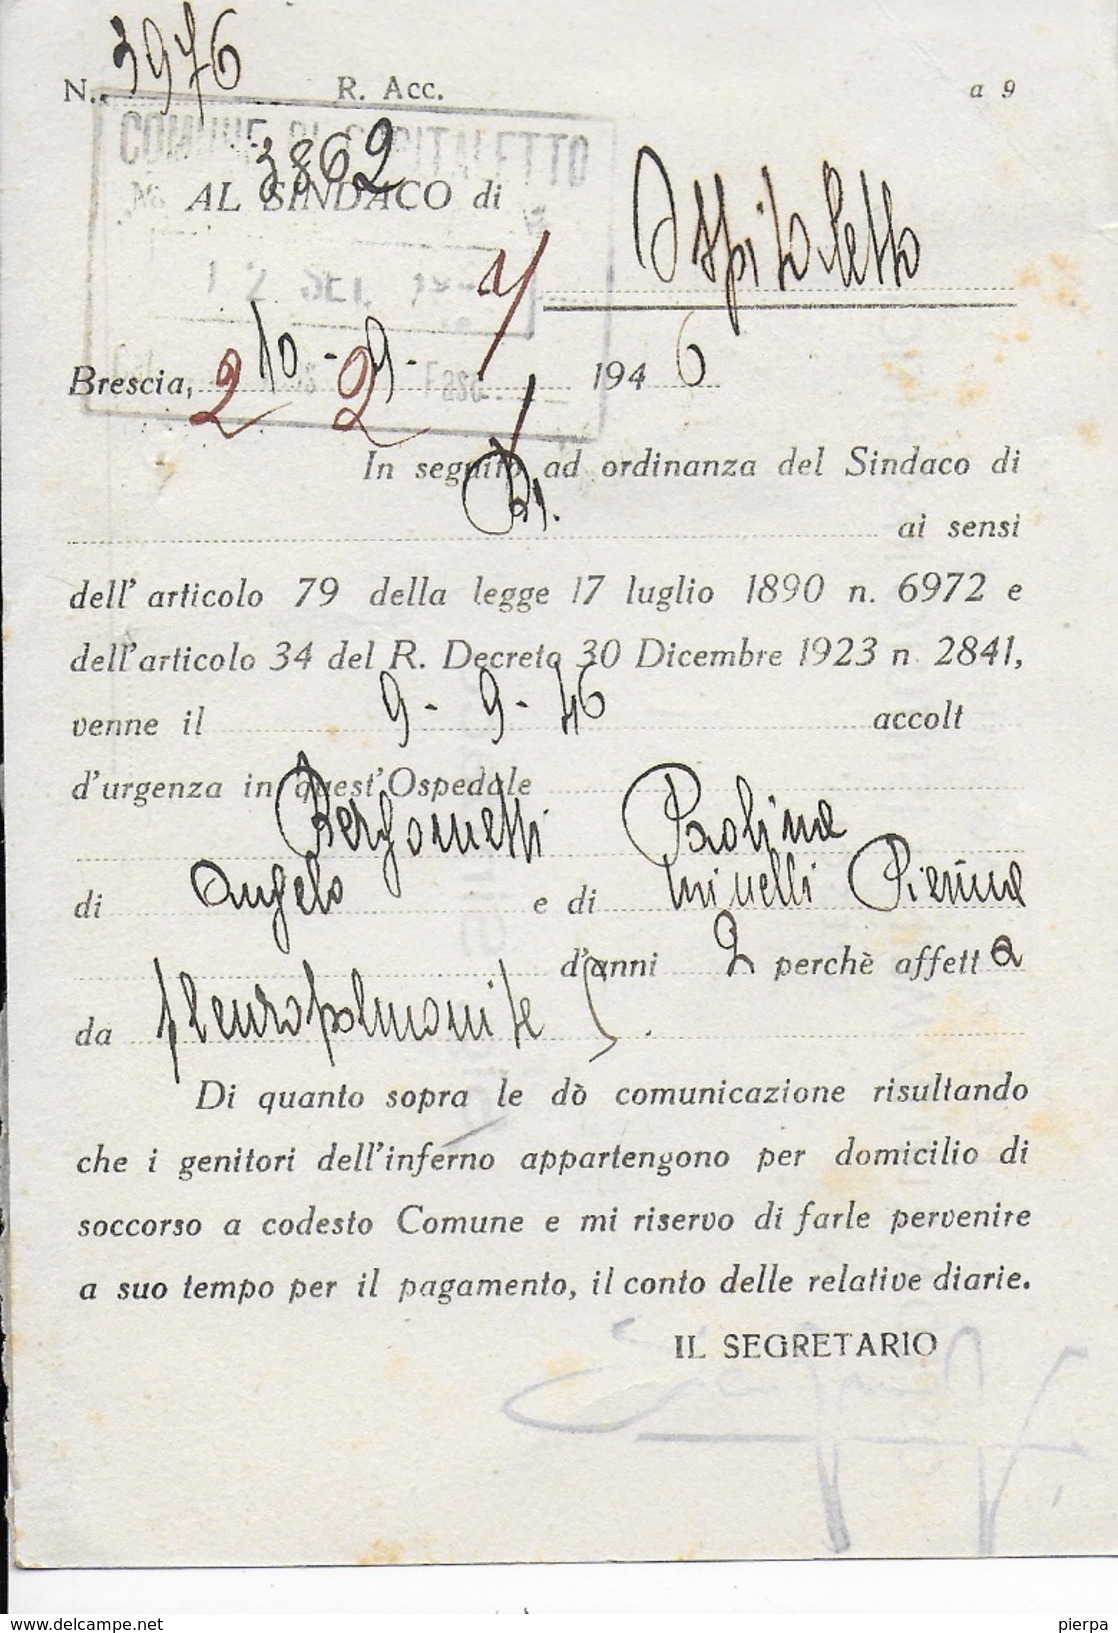 N. 3976 R. Acc. a 9
COMUNE DI OSPITALETTO
3862
AL SINDACO di Ospitaletto
12 SET. 19
Brescia, 10 - 9 - 1946
2 2 Fasc.
In seguito ad ordinanza del Sindaco di
ai sensi
dell'articolo 79 della legge 17 luglio 1890 n. 6972 e
dell'articolo 34 del R. Decreto 30 Dicembre 1923 n. 2841,
venne il 9 - 9 - 46 accolt
d'urgenza in quest'Ospedale
Bergometti Paolina
di Angelo e di Minelli Pierina
d'anni 2 perchè affetta
da pleuropolmonite.
Di quanto sopra le dò comunicazione risultando
che i genitori dell'inferno appartengono per domicilio di
soccorso a codesto Comune e mi riservo di farle pervenire
a suo tempo per il pagamento, il conto delle relative diarie.
IL SEGRETARIO
www.delcampe.net
pierpa